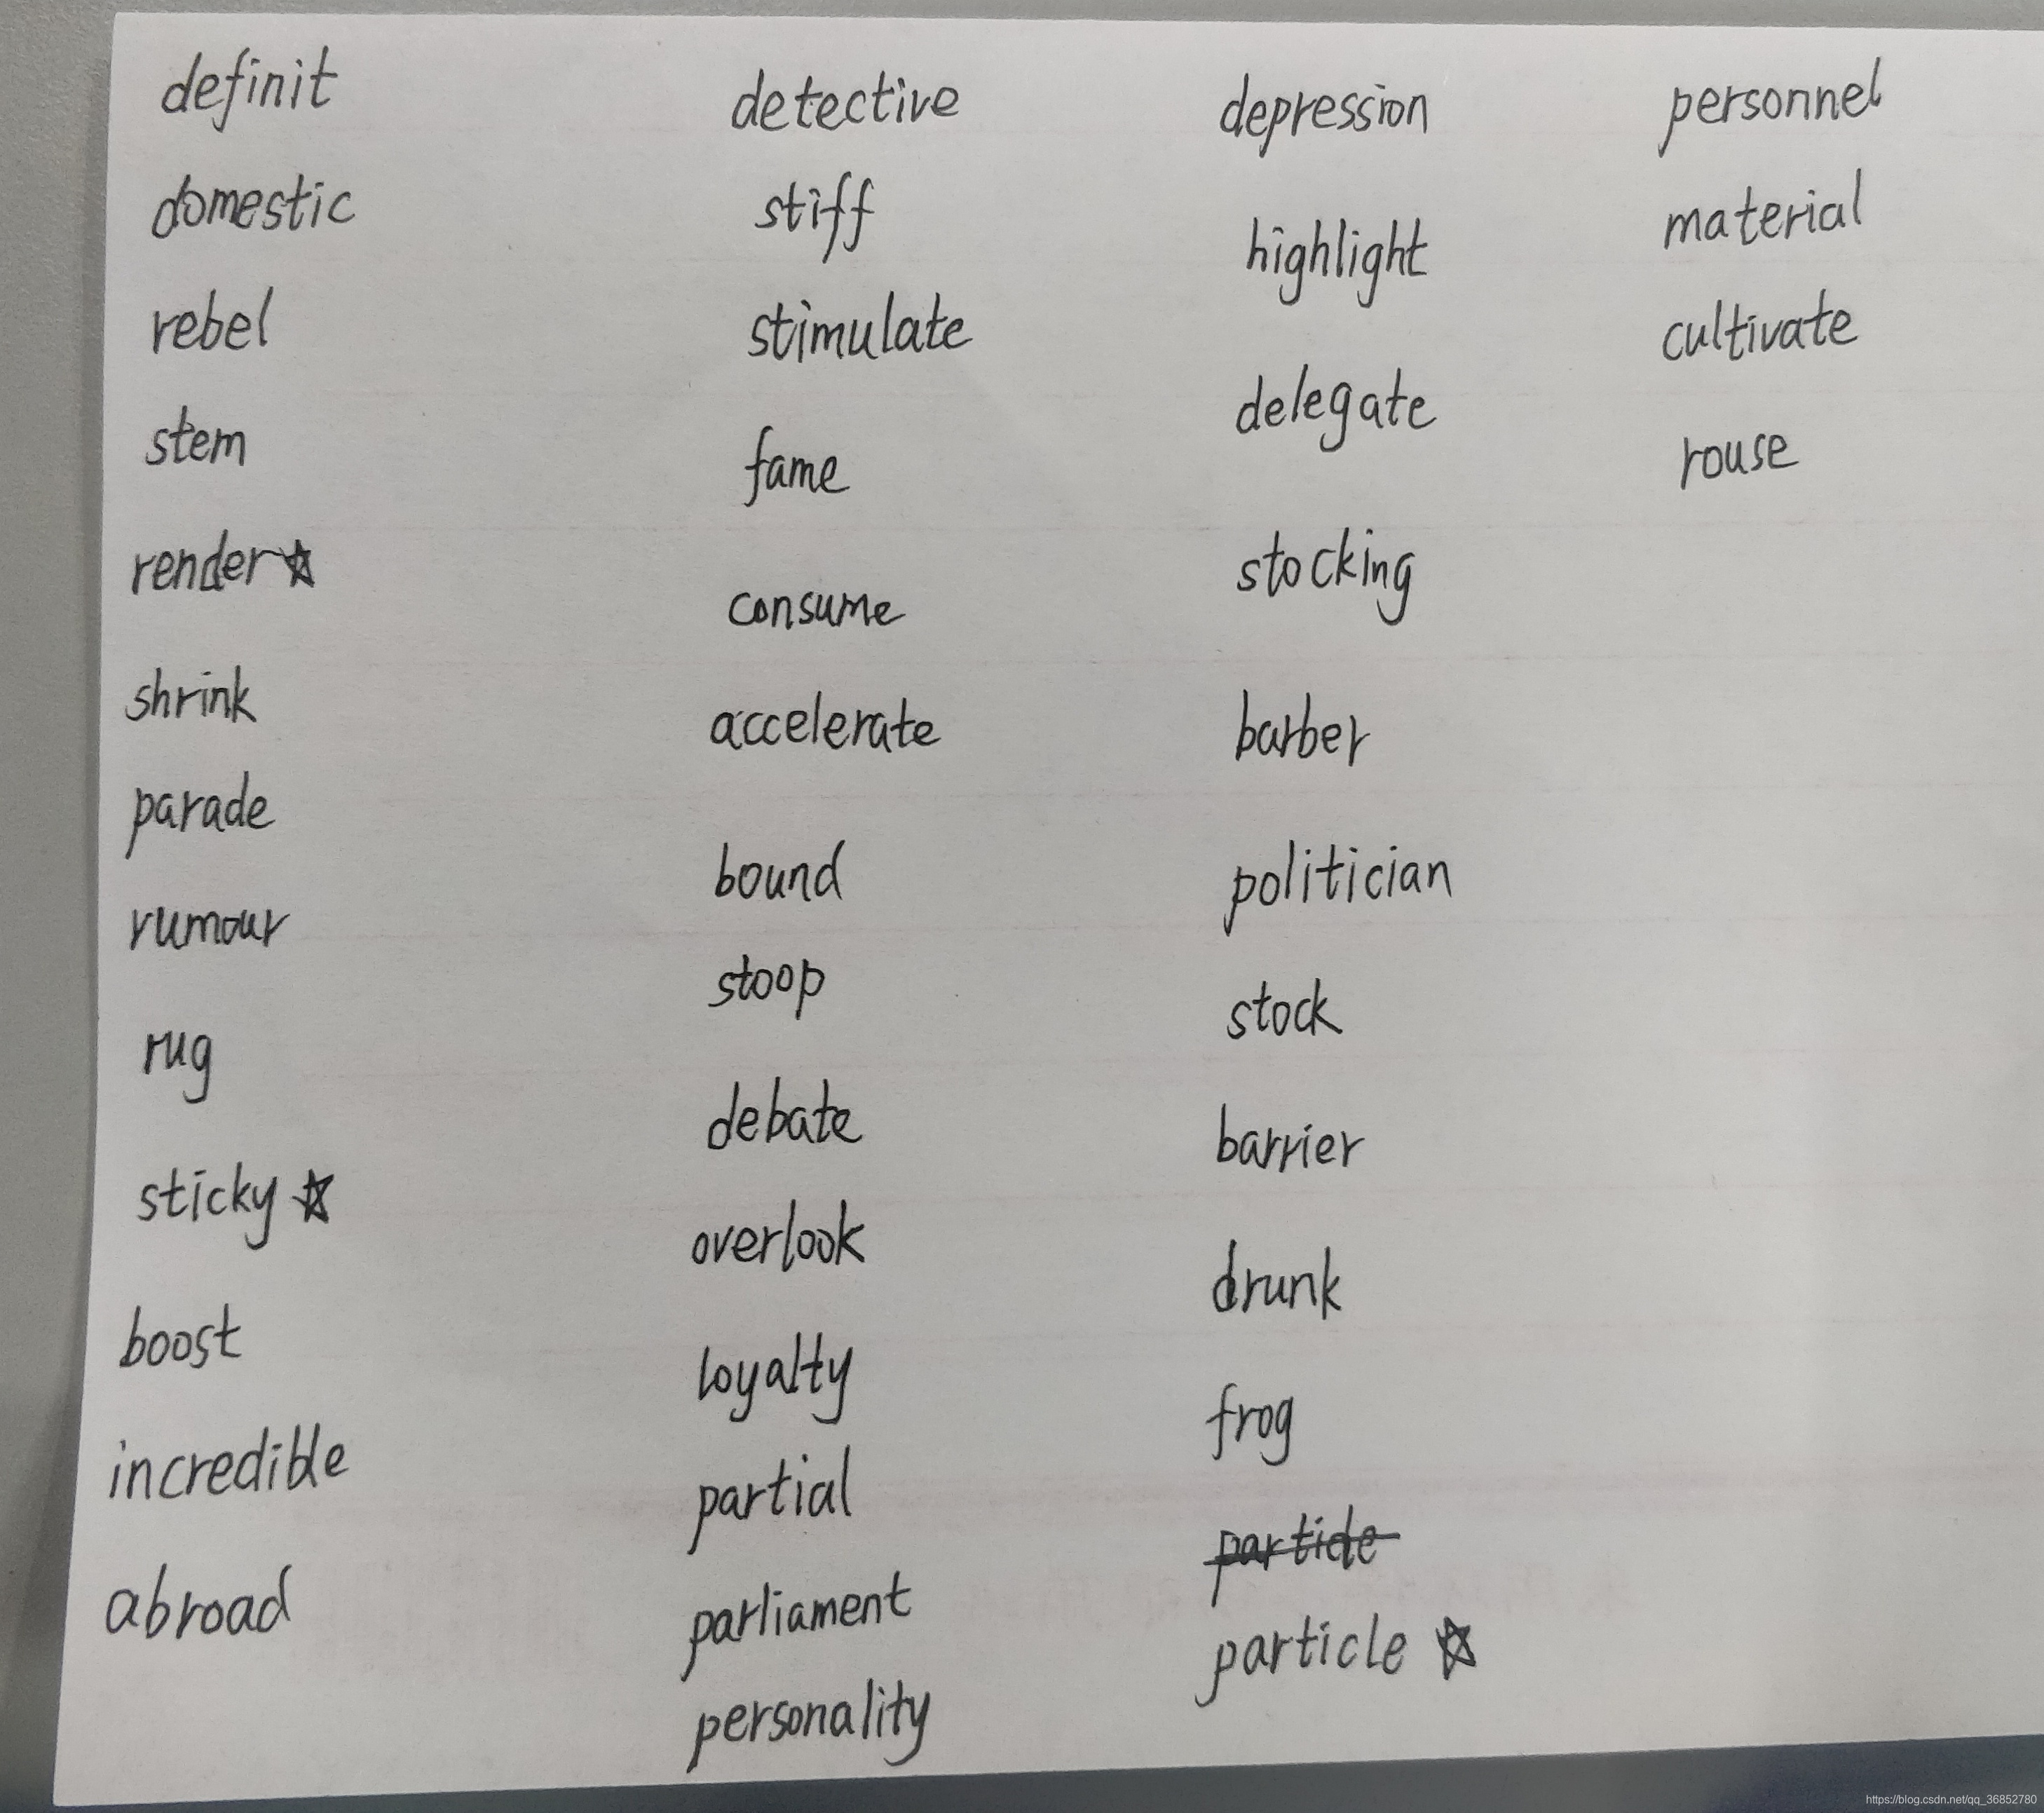 definit
domestic
rebel
stem
render☆
shrink
parade
rumour
rug
sticky ☆
boost
incredible
abroad
detective
stiff
stimulate
fame
consume
accelerate
bound
stoop
debate
overlook
loyalty
partial
parliament
personality
depression
highlight
delegate
stocking
barber
politician
stock
barrier
drunk
frog
particle
particle ☆
personnel
material
cultivate
rouse
https://blog.csdn.net/qq_36852780